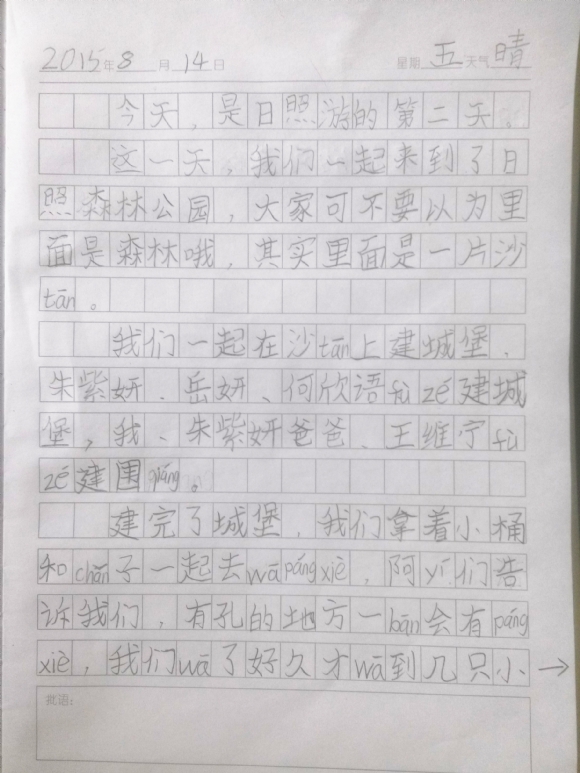 2015年8月14日 星期五天气晴
今天,是日照游的第二天。
这一天,我们一起来到了日
照森林公园,大家可不要以为里
面是森林哦,其实里面是一片沙
tān。
我们一起在沙tān上建城堡,
朱紫妍、岳妍、何欣语fù zé建城
堡,我、朱紫妍爸爸、王维宁fù
zé建围qiáng。
建完了城堡,我们拿着小桶
和chǎn子一起去wā páng xiè,阿yí们告
诉我们,有孔的地方一bān会有páng
xiè,我们wā了好久才wā到几只小→
批语: